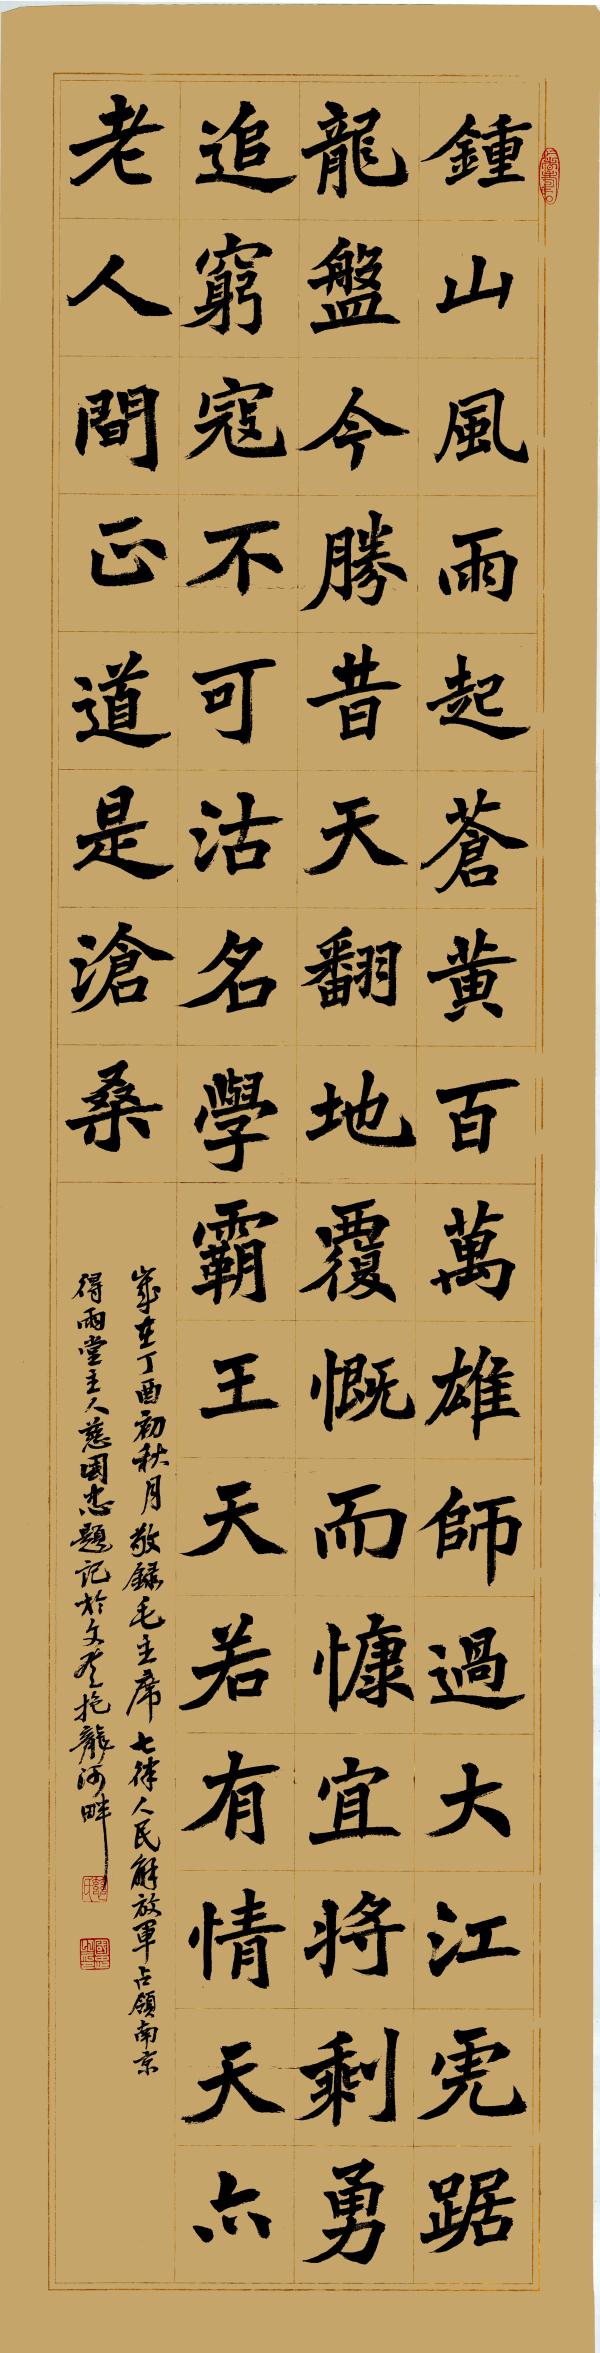 鍾山風雨起蒼黄百萬雄師過大江虎踞
龍盤今勝昔天翻地覆慨而慷宜將剩勇
追窮寇不可沽名學霸王天若有情天亦
老人間正道是滄桑
歲在丁酉初秋月敬録毛主席七律人民解放軍占領南京
得雨堂主人慈国忠題記於文登抱龍河畔